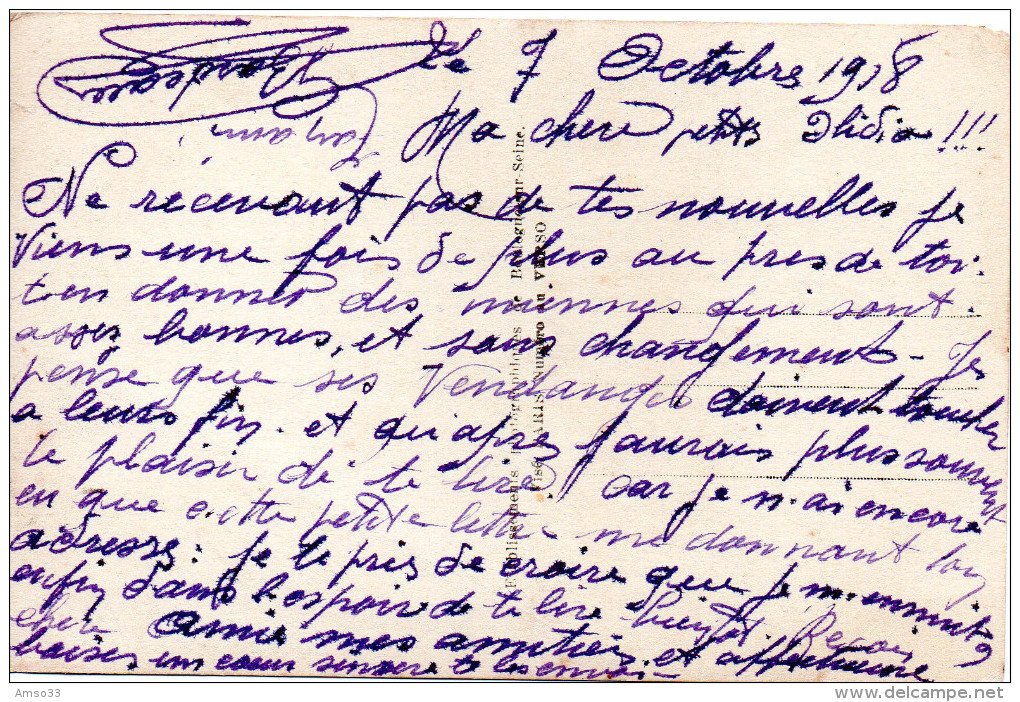 Le 7 Octobre 1918
Ma chere petite Ilidia !!!
Ne recevant pas de tes nouvelles je
viens une fois de plus au pres de toi.
t en donner des miennes qui sont.
asses bonnes, et sans changement - Je
pense que ses Vendanges doivent toucher
a leurs fin. et qu'apres j'aurais plus souvent
le plaisir de te lire car je n.ai encore
eu que cette petite lettre me donnant ton
adresse: je te pris de croire que je m.ennuit
enfin dans l.espoir de te lire bientot. Recois
chere amie mes amities et affectueuse
baises un coeur sincere te les envoi-
Etablissements Photographiques de Boulogne-sur-Seine.
PARIS numéro au VERSO
Amso33
www.delcampe.net